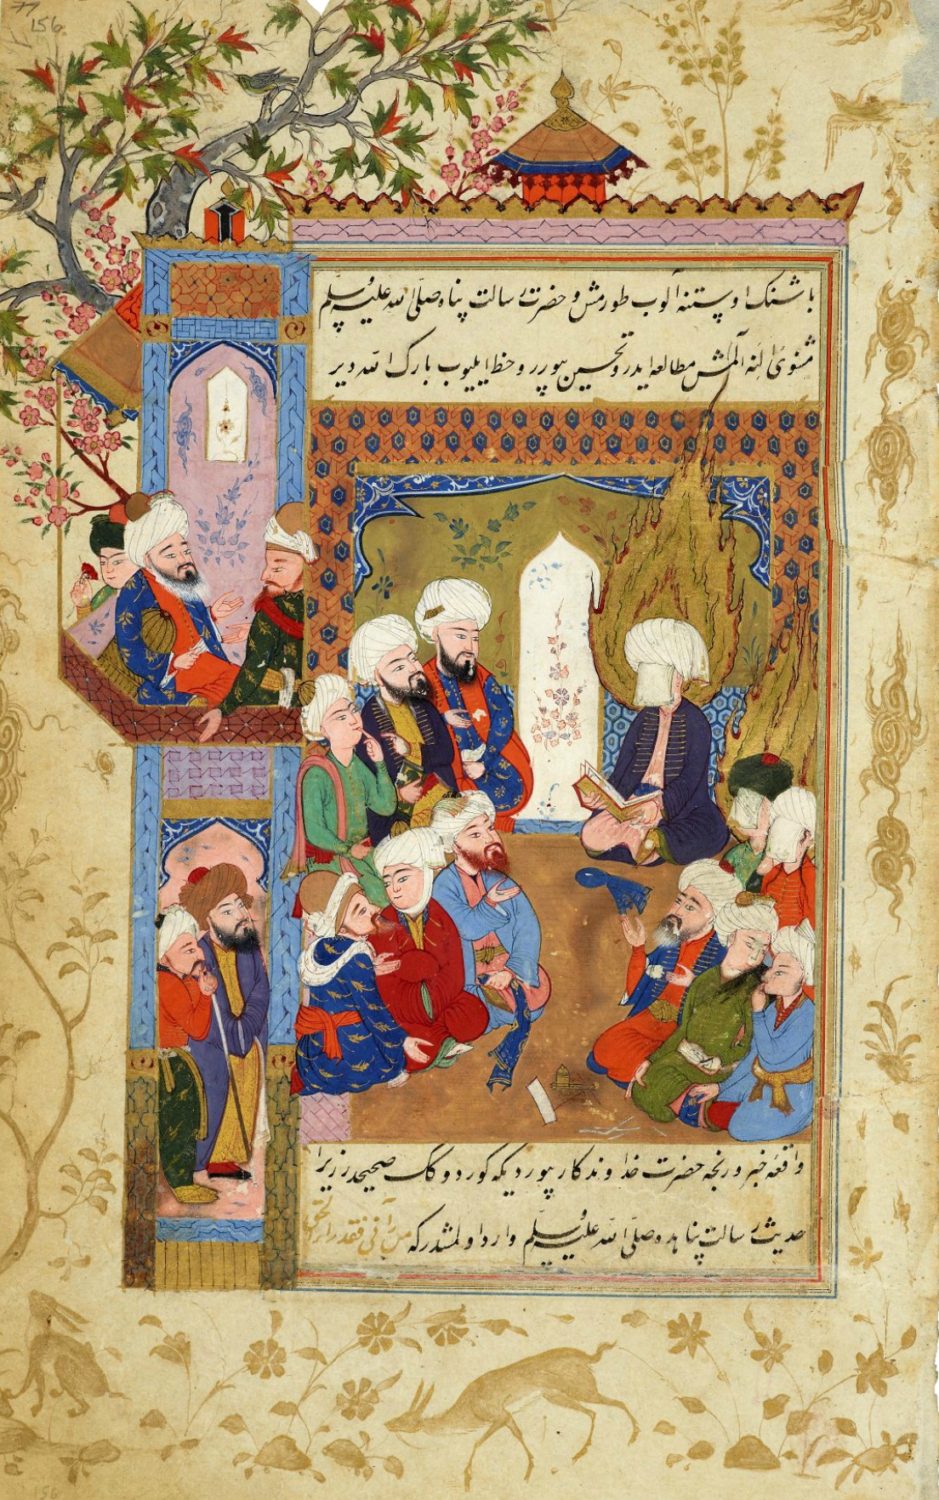 77
156
باشنك اوستنه آلوب طورمش و حضرت رسالت پناه صلّى الله عليه وسلّم
مثنوی النه آلمش مطالعه ایدر و تحسین بیورر و حظ ایلیوب بارك الله دیر
واقعه خبر ویرنجه حضرت خداوندكار بیوردیكه كوردوكك صحیحدر زیرا
حدیث رسالت پناهده صلّى الله عليه وسلّم وارد اولمشدركه من رآنی فقد رأى الحق
156